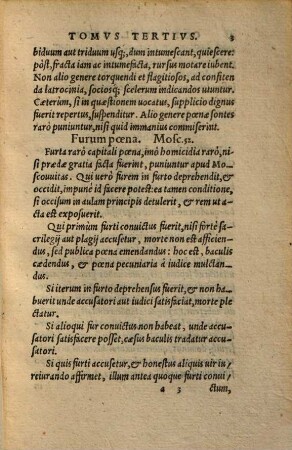 TOMVS TERTIVS. 3
biduum aut triduum usq;, dum intumescant, quiescere:
pòst, fracta iam ac intumefacta, rursus motare iubent.
Non alio genere torquendi et flagitiosos, ad confiten
da latrocinia, sociosq; scelerum indicandos utuntur.
Cæterùm, si in quæstionem uocatus, supplicio dignus
fuerit repertus, suspenditur. Alio genere pœnæ sontes
rarò puniuntur, nisi quid immanius commiserint.
Furum pœna. Mosc. 52.
Furta rarò capitali pœna, imò homicidia rarò, ni-
si prædæ gratia facta fuerint, puniuntur apud Mo-
scouuitas. Qui uerò furem in furto deprehendit, &
occidit, impunè id facere potest: ea tamen conditione,
si occisum in aulam principis detulerit, & rem ut a-
cta est exposuerit.
Qui primùm furti conuictus fuerit, nisi fortè sa-
crilegij aut plagij accusetur, morte non est afficien-
dus, sed publica pœna emendandus: hoc est, baculis
cædendus, & pœna pecuniaria à iudice mulctan-
dus.
Si iterum in furto deprehensus fuerit, & non ha-
buerit unde accusatori aut iudici satisfaciat, morte ple
ctatur.
Si alioqui fur conuictus non habeat, unde accu-
satori satisfacere posset, cæsus baculis tradatur accu-
satori.
Si quis furti accusetur, & honestus aliquis uir iu-
reiurando affirmet, illum antea quoque furti conui/
a 3 ctum,